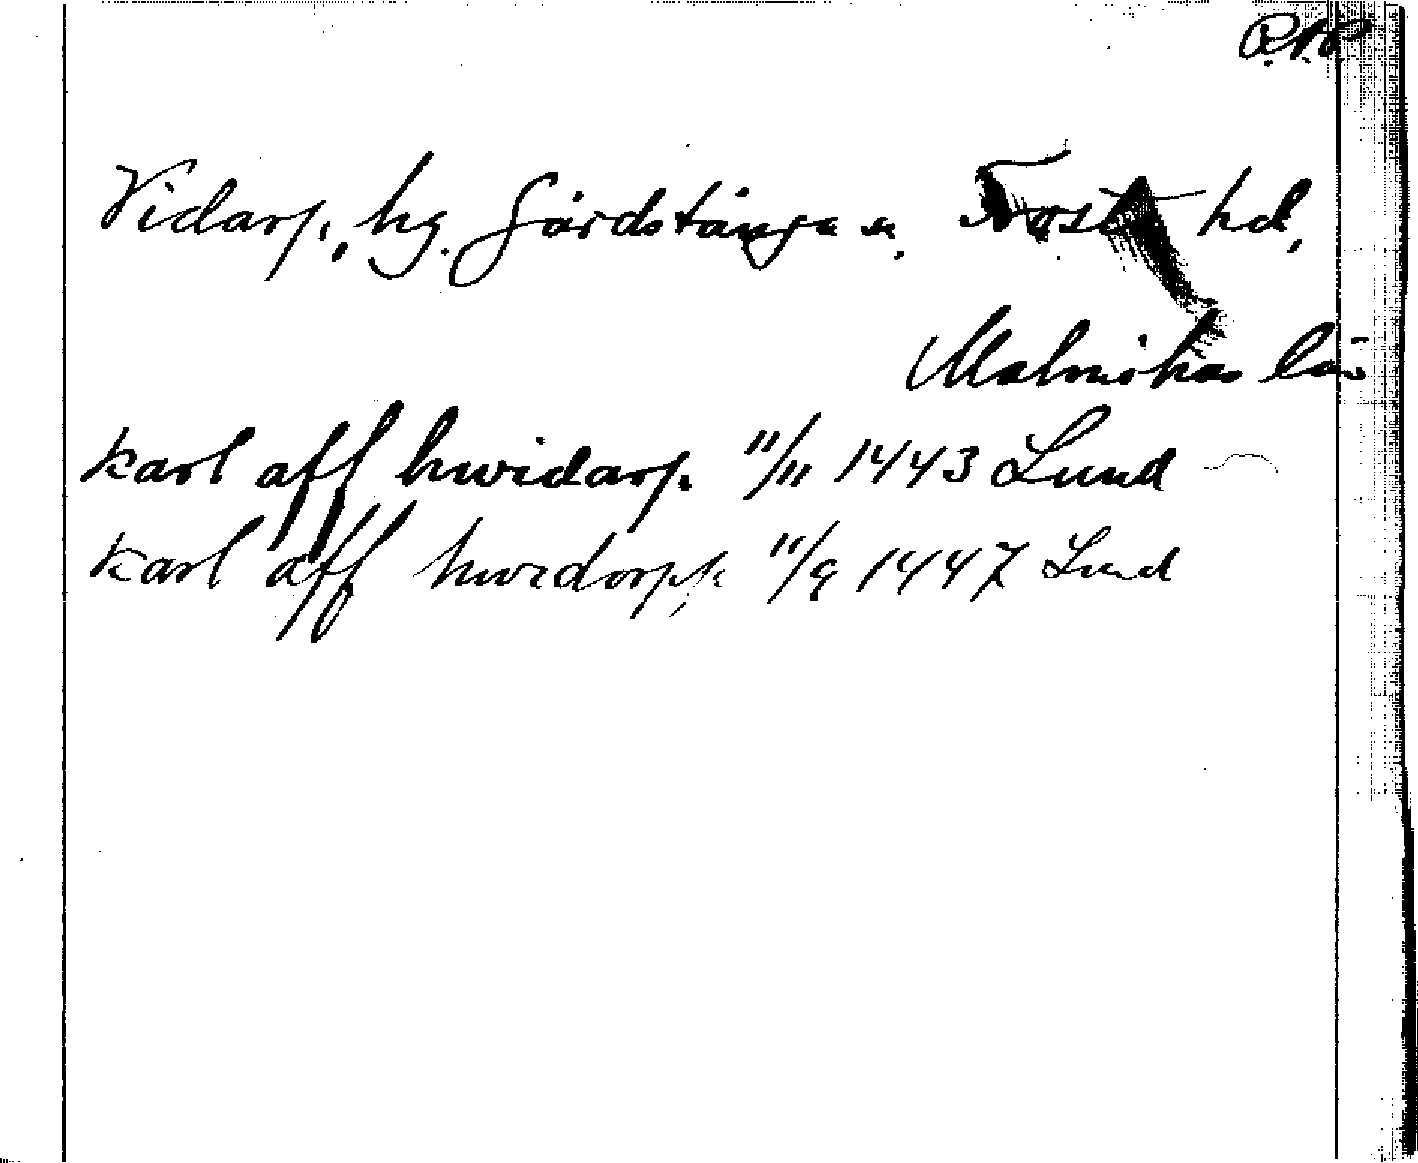 Vidarp, hg. Gårdstånga sn, Frosta hd,
Malmöhus län
karl aff hwidarp. 11/11 1443 Lund
karl aff hwidorpp 11/9 1447 Lund